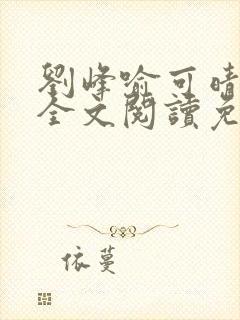 劉峰喻可晴
全文閱讀免
依蔓